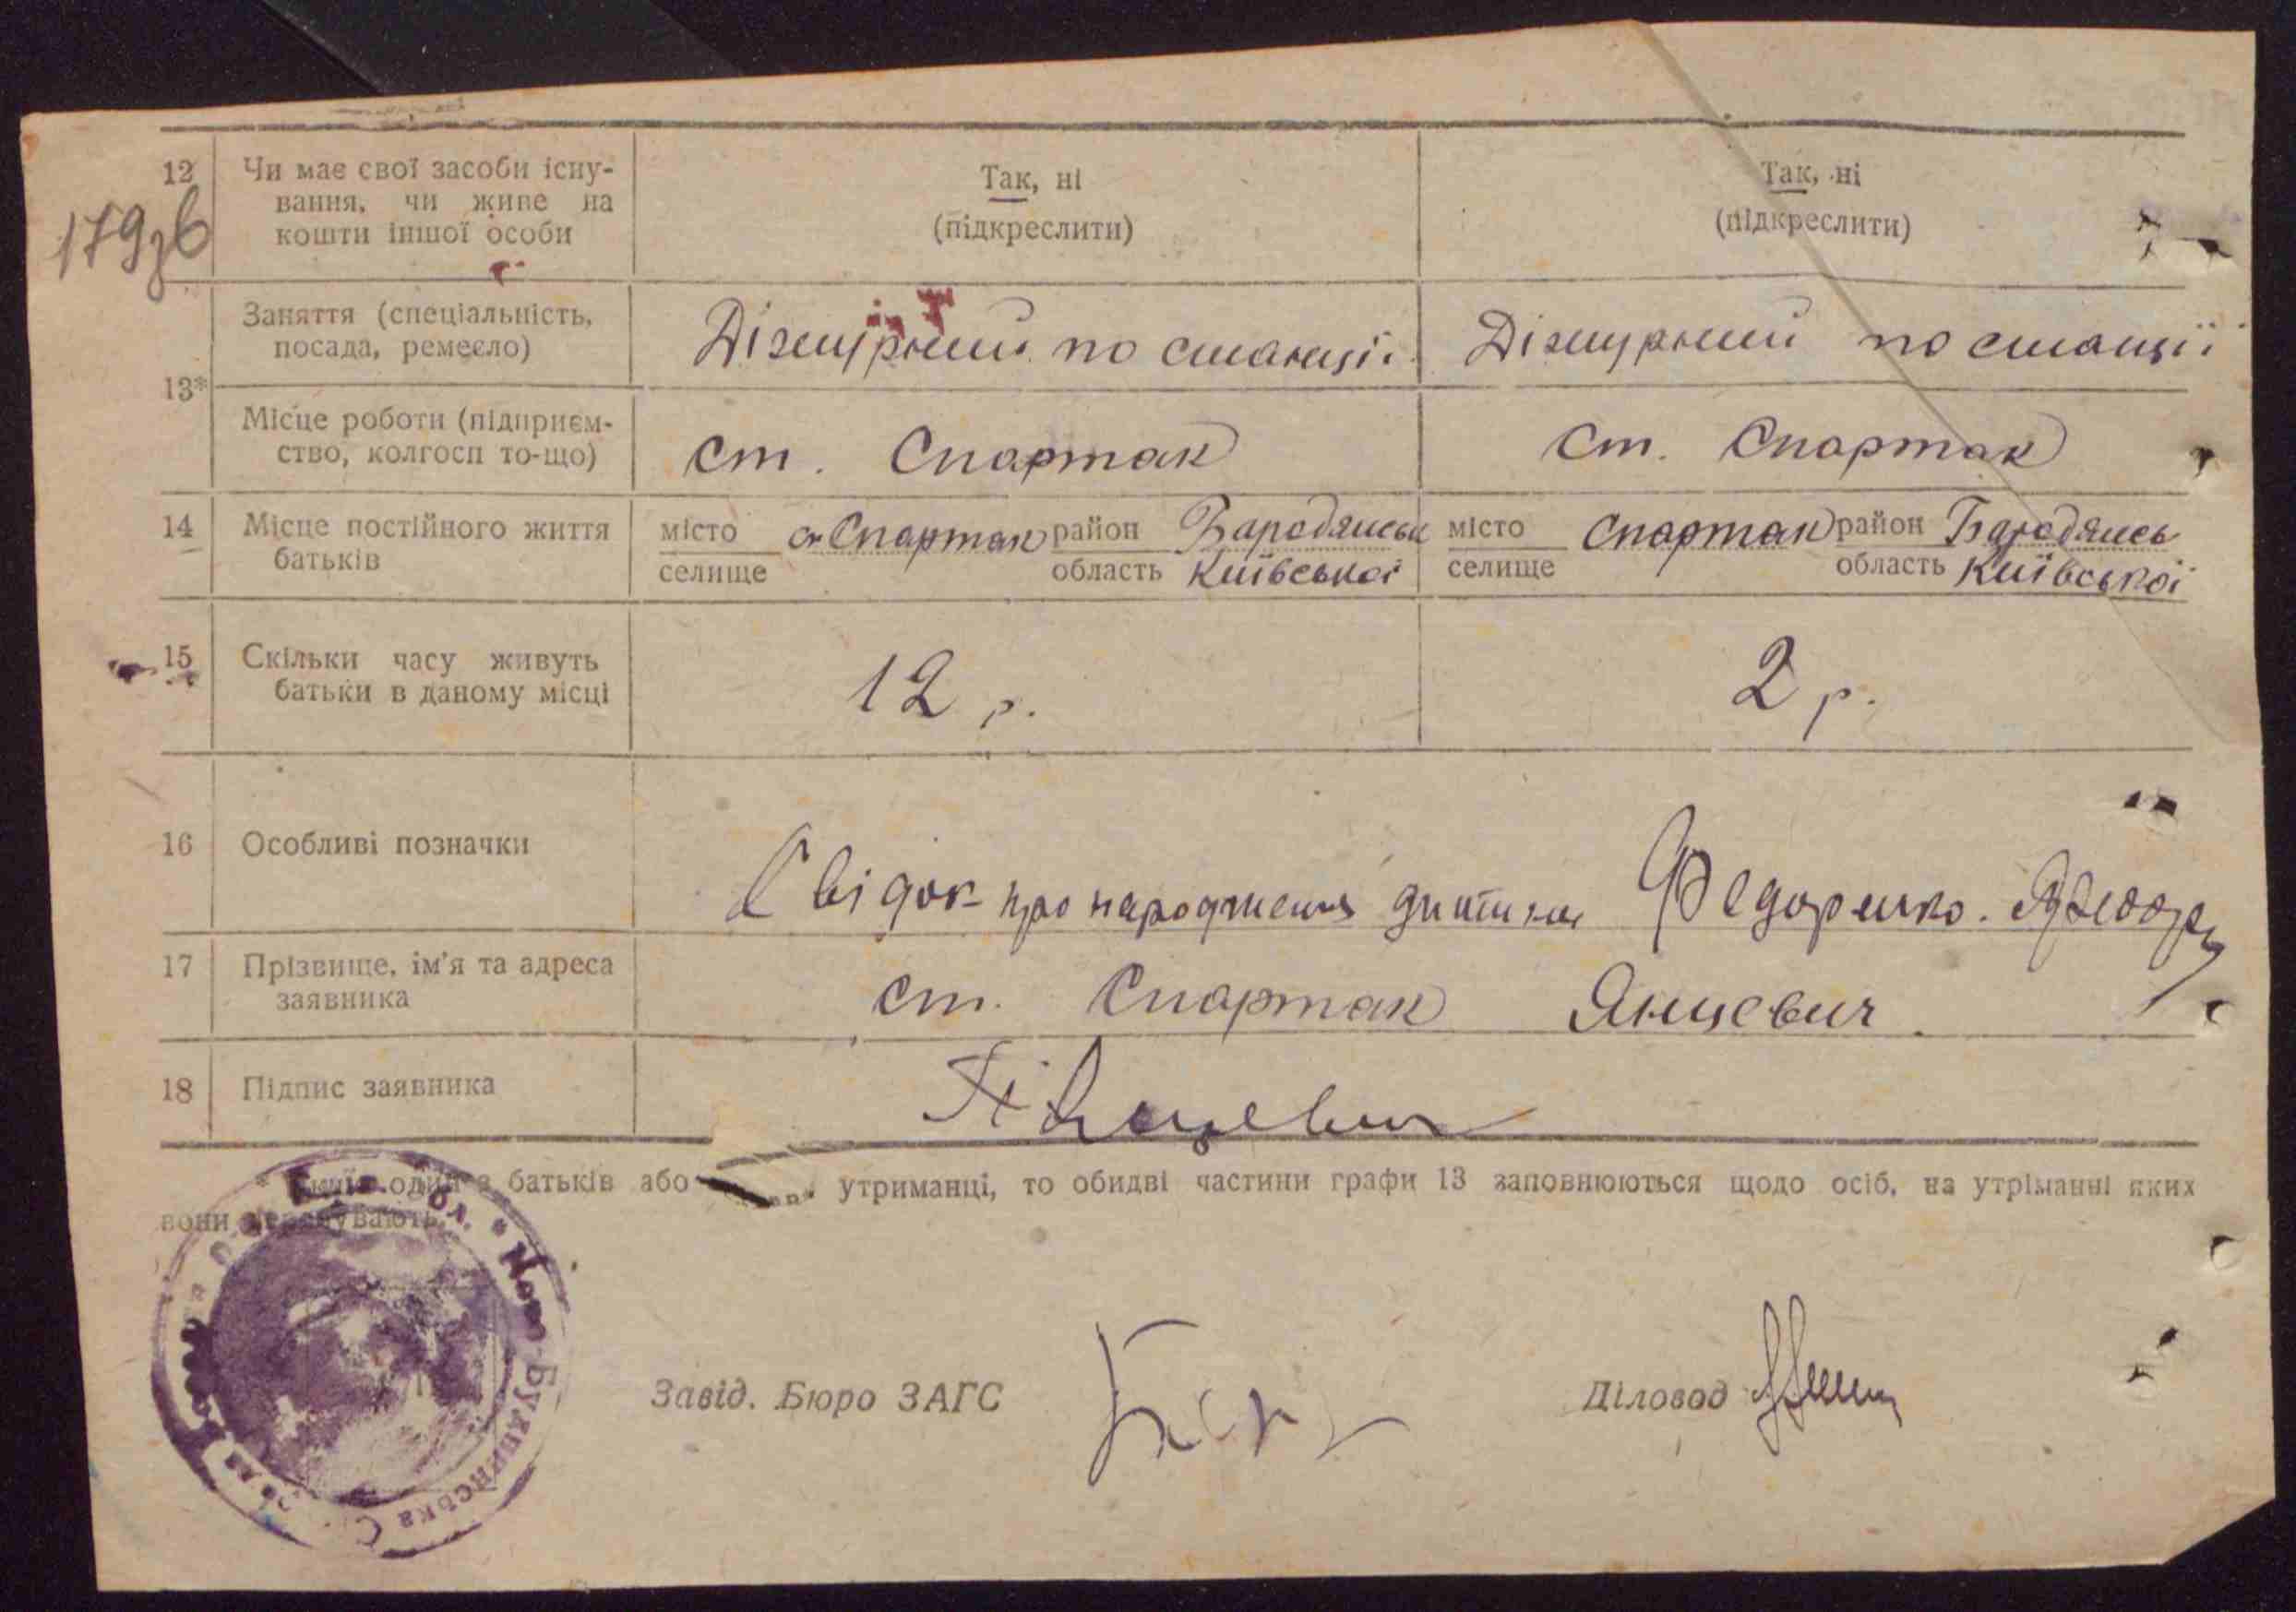 179зв
12 Чи має свої засоби існу-
вання, чи живе на
кошти іншої особи
Так, ні
(підкреслити)
Так, ні
(підкреслити)
13*
Заняття (спеціальність,
посада, ремесло)
Діжурний по станції
Діжурний по станції
Місце роботи (підприєм-
ство, колгосп то-що)
ст. Спартак
ст. Спартак
14 Місце постійного життя
батьків
місто ст Спартак район Бародянськ
селище область Київської
місто Спартак район Бародянсь
селище область Київської
15 Скільки часу живуть
батьки в даному місці
12 р.
2 р.
16 Особливі позначки
Свідок про народження дитини Федоренко.
17 Прізвище, ім'я та адреса
заявника
ст. Спартак Янцевич
18 Підпис заявника
Янцевич
один з батьків або утриманці, то обидві частини графи 13 заповнюються щодо осіб, на утріманні яких
вони перебувають.
Завід. Бюро ЗАГС
Діловод